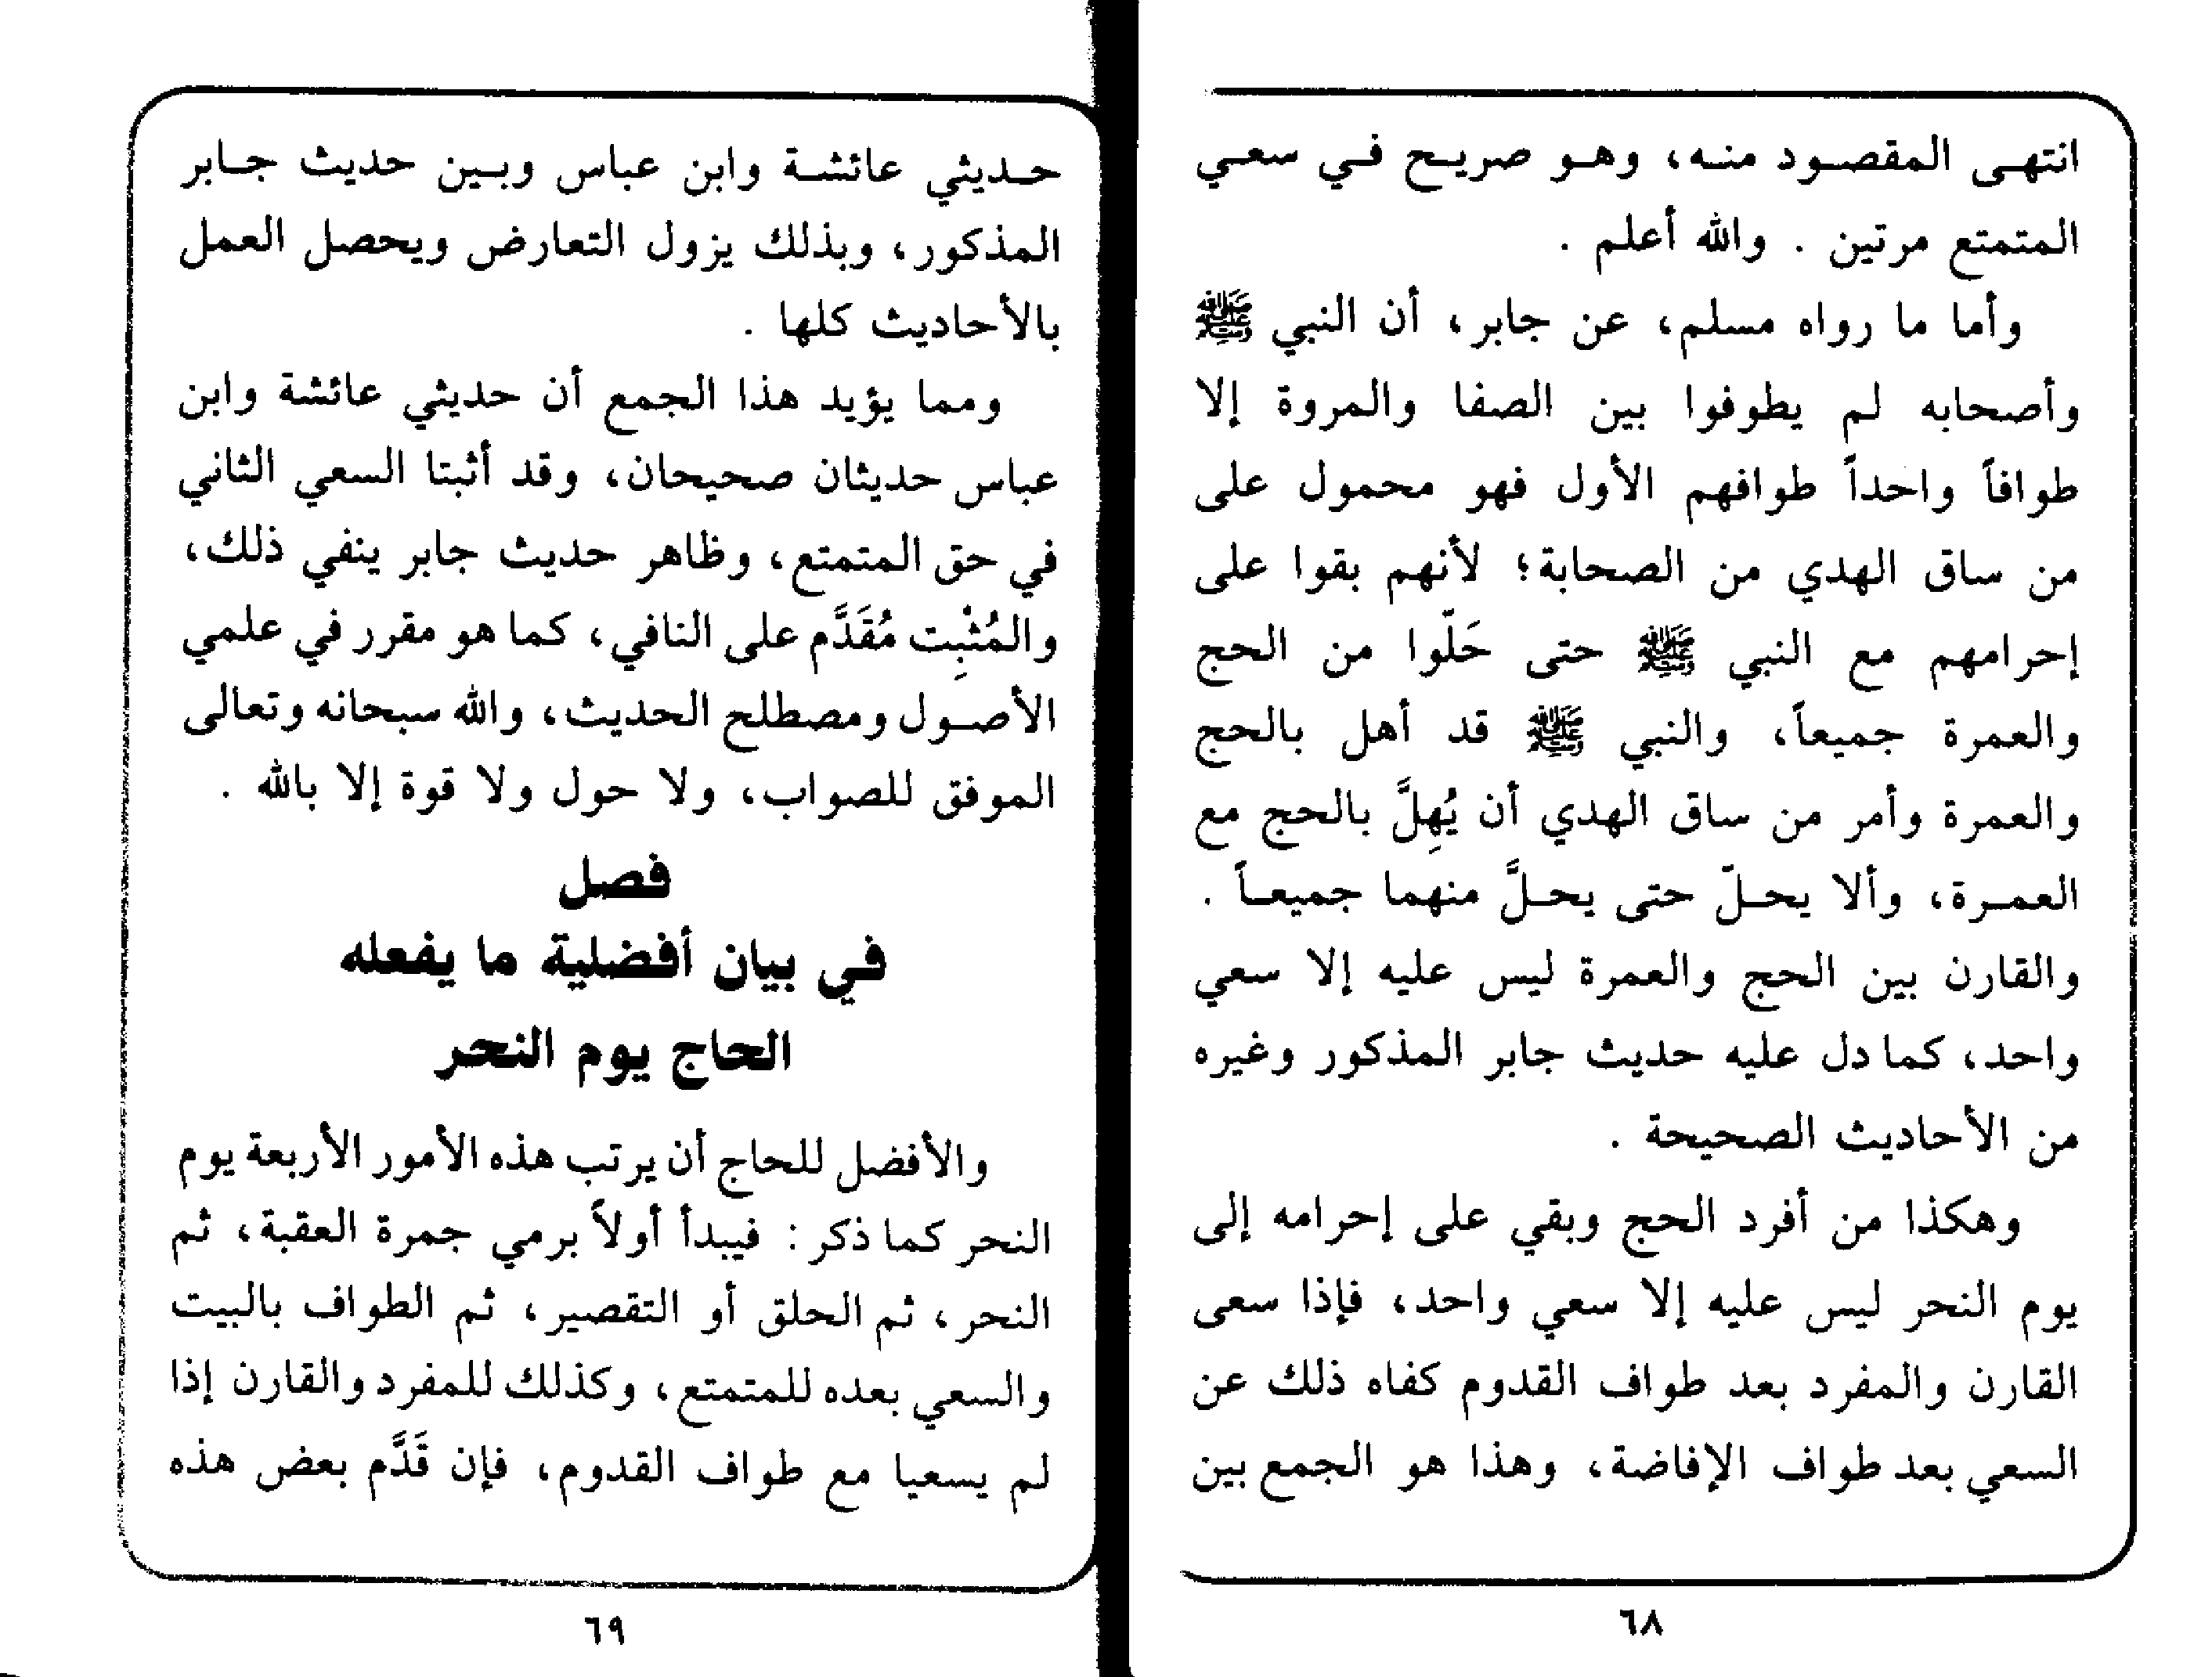 انتهى المقصود منه، وهو صريح في سعي
المتمتع مرتين . والله أعلم .
وأما ما رواه مسلم، عن جابر، أن النبي ﷺ
وأصحابه لم يطوفوا بين الصفا والمروة إلا
طوافاً واحداً طوافهم الأول فهو محمول على
من ساق الهدي من الصحابة؛ لأنهم بقوا على
إحرامهم مع النبي ﷺ حتى حَلّوا من الحج
والعمرة جميعاً، والنبي ﷺ قد أهل بالحج
والعمرة وأمر من ساق الهدي أن يُهِلَّ بالحج مع
العمرة، وألا يحلّ حتى يحلَّ منهما جميعاً .
والقارن بين الحج والعمرة ليس عليه إلا سعي
واحد، كما دل عليه حديث جابر المذكور وغيره
من الأحاديث الصحيحة .
وهكذا من أفرد الحج وبقي على إحرامه إلى
يوم النحر ليس عليه إلا سعي واحد، فإذا سعى
القارن والمفرد بعد طواف القدوم كفاه ذلك عن
السعي بعد طواف الإفاضة، وهذا هو الجمع بين
٦٨
حديثي عائشة وابن عباس وبين حديث جابر
المذكور، وبذلك يزول التعارض ويحصل العمل
بالأحاديث كلها .
ومما يؤيد هذا الجمع أن حديثي عائشة وابن
عباس حديثان صحيحان، وقد أثبتا السعي الثاني
في حق المتمتع، وظاهر حديث جابر ينفي ذلك،
والمُثْبِت مُقَدَّم على النافي، كما هو مقرر في علمي
الأصول ومصطلح الحديث، والله سبحانه وتعالى
الموفق للصواب، ولا حول ولا قوة إلا بالله .
فصل
في بيان أفضلية ما يفعله
الحاج يوم النحر
والأفضل للحاج أن يرتب هذه الأمور الأربعة يوم
النحر كما ذكر : فيبدأ أولاً برمي جمرة العقبة، ثم
النحر، ثم الحلق أو التقصير، ثم الطواف بالبيت
والسعي بعده للمتمتع، وكذلك للمفرد والقارن إذا
لم يسعيا مع طواف القدوم، فإن قَدَّم بعض هذه
٦٩